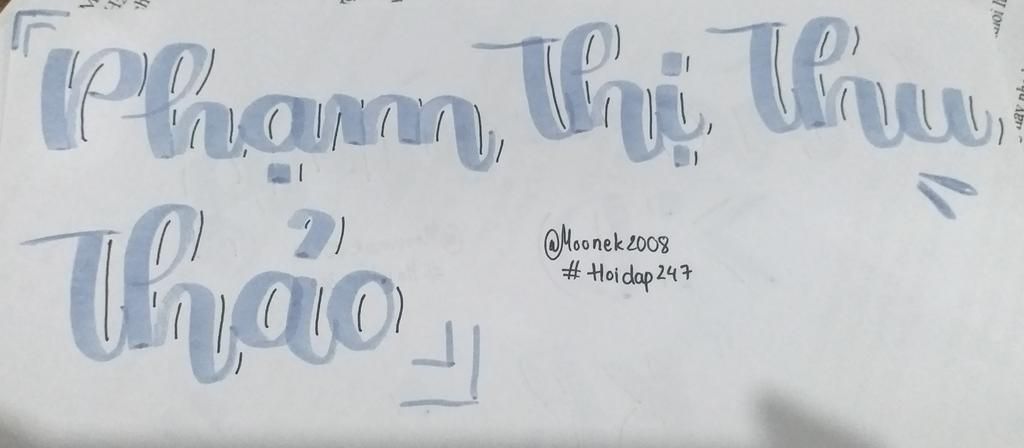 Phạm Thị Thu
Thảo
@Moonek2008
#Hoidap247